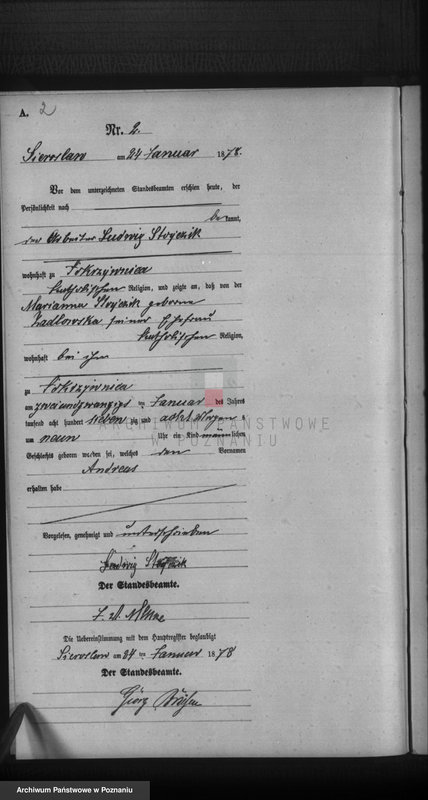 A.
2
Nr. 2.
Sieroslaw am 24 Januar 1878.
Vor dem unterzeichneten Standesbeamten erschien heute, der
Persönlichkeit nach
bekannt,
der Arbeiter Ludwig Stojczik
wohnhaft zu Pokrzywnica
katholischen Religion, und zeigte an, daß von der
Marianna Stojczik geborene
Zadlowska seiner Ehefrau
katholischen Religion,
wohnhaft bei ihm
zu Pokrzywnica
am zweiundzwanzigs ten Januar des Jahres
tausend acht hundert sieben zig und acht Morgens
um neun Uhr ein Kind männlichen
Geschlechts geboren worden sei, welches den Vornamen
Andreas
erhalten habe
Vorgelesen, genehmigt und unterschrieben
Ludwig Stojczik
Der Standesbeamte.
Die Uebereinstimmung mit dem Hauptregister beglaubigt
Sieroslaw am 24 ten Januar 1878
Der Standesbeamte.
ARCHIWUM PAŃSTWOWE
W POZNANIU
Archiwum Państwowe w Poznaniu